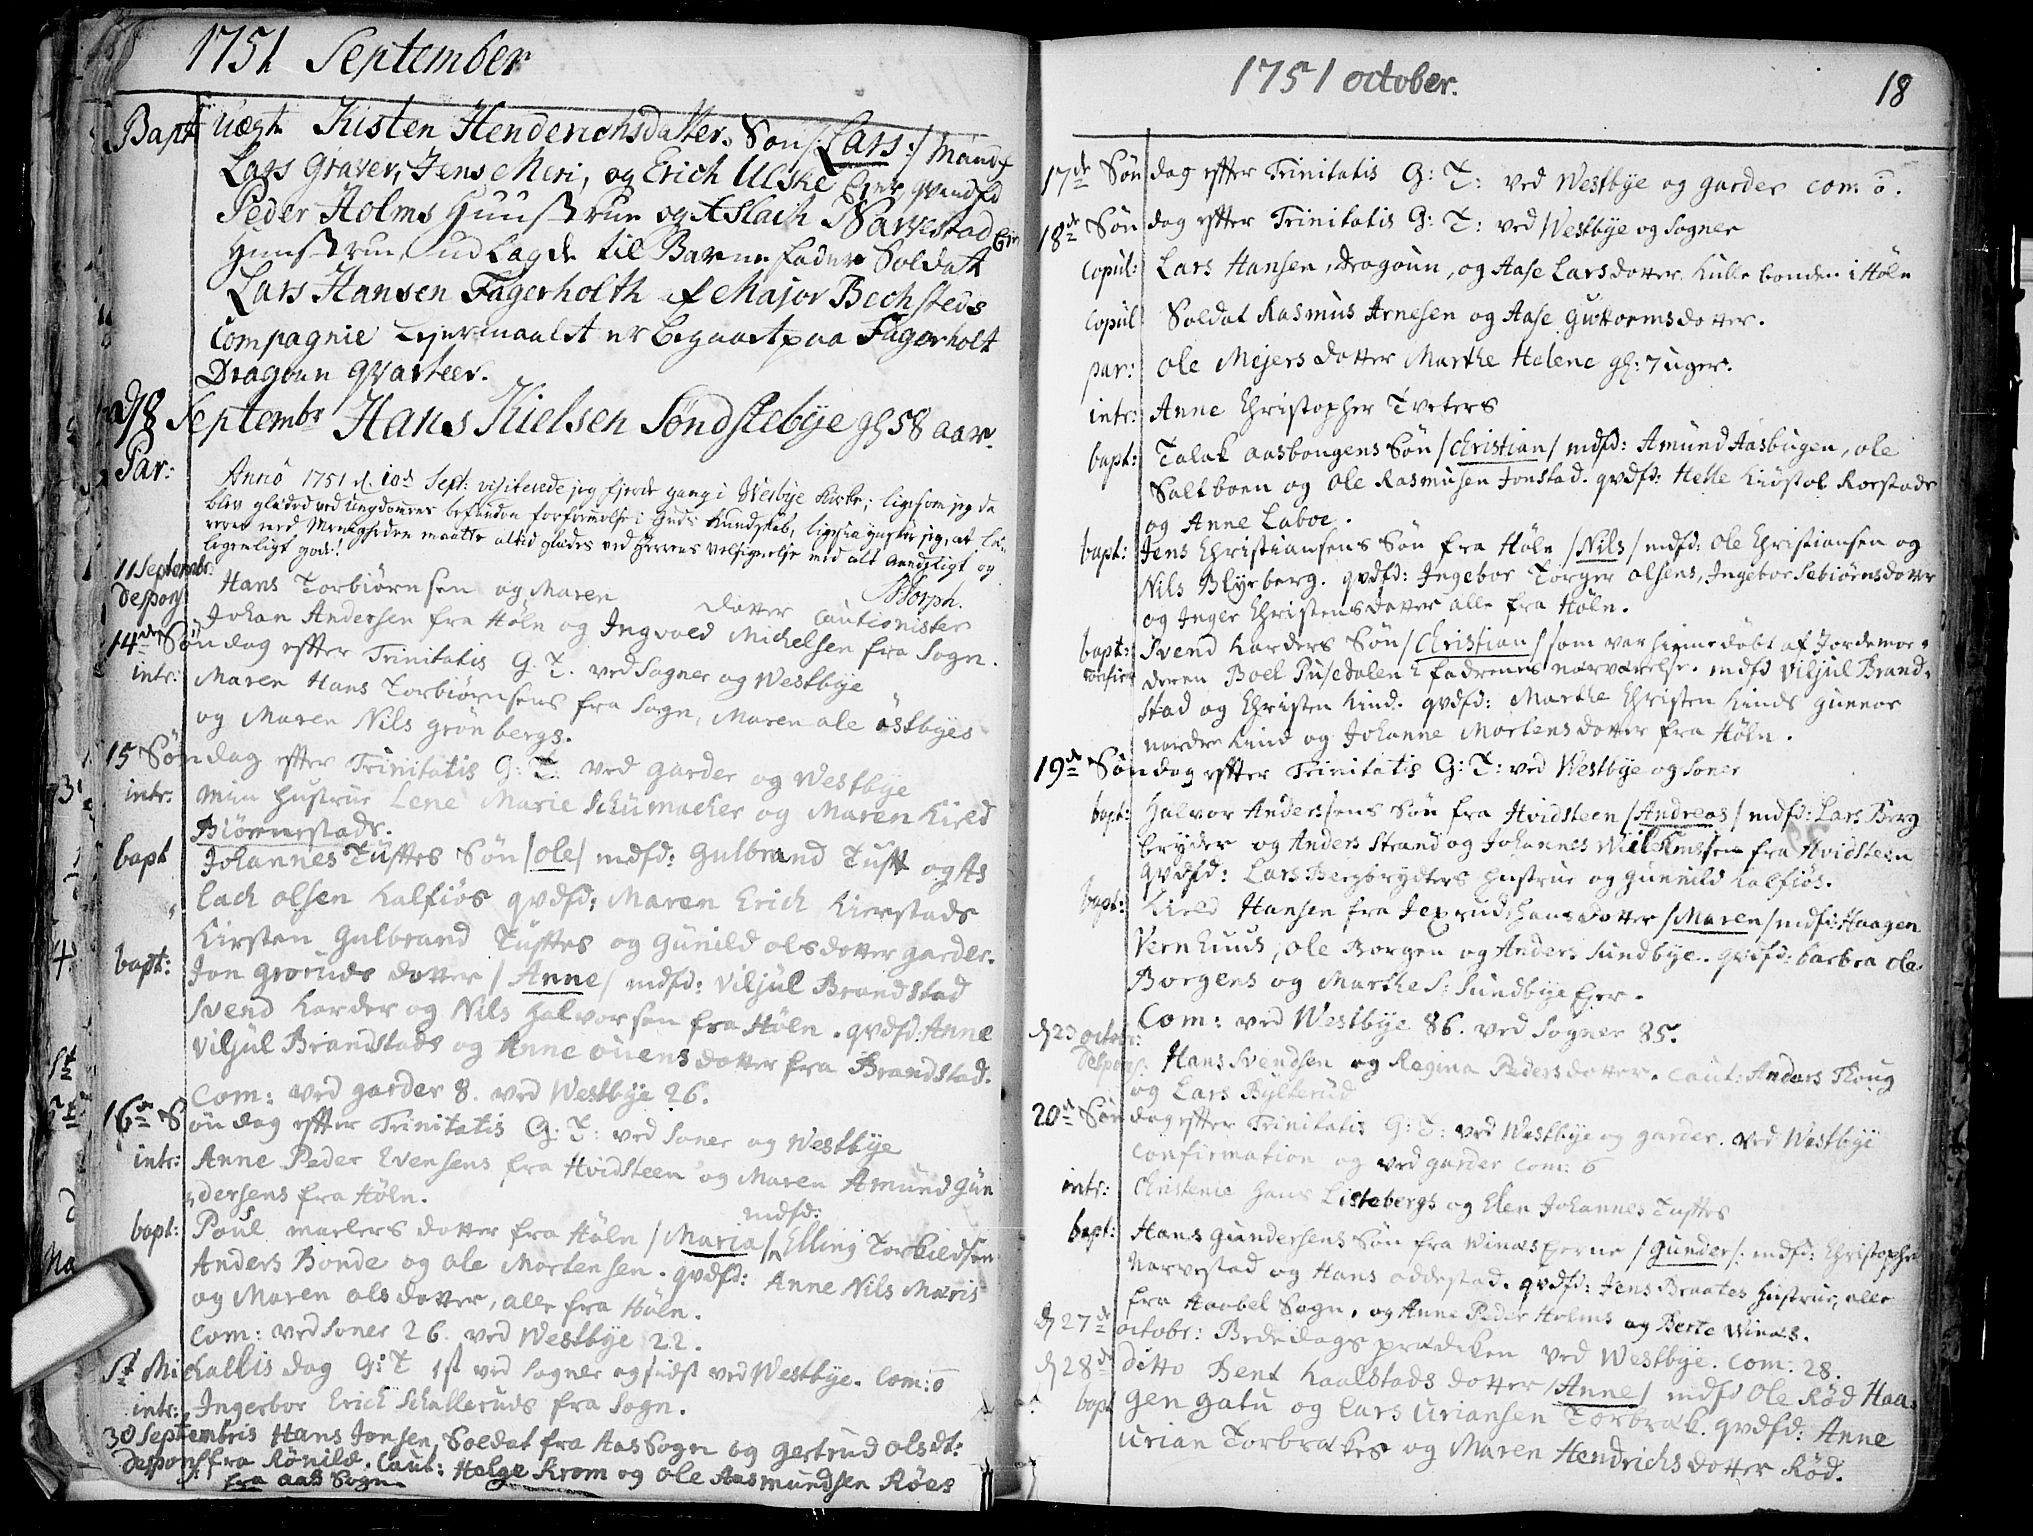 1751 September
Bapt uægte Kisten Henderichsdatters Søn /: Lars :/ mandf
Lars Graver, Jens Meri, og Erich Ulske Eier, qvindfd
Peder Holms Huustrue og Aslach Narvestad Eier
Huustrue, udlagde til Barne fader Soldatt
Lars Hansen Fagerholth af Major Bechsteds
Compagnie Leiermaalet er begaaet paa Fagerholt
Dragoun qvarteer.
d 8 Septembr Hans Kielsen Søndstebÿe gl 58 aar.
Par:
Anno 1751 d. 10de Sept: visiterede jeg fierde gang i Wesbÿe Kirke; ligesom jeg da
blev glædet ved Ungdommens befundne forfremelse i Guds Kundskab, ligesaa ynsker jeg, at Læ-
reren med Menigheden maatte altid glædes ved Herrens Velsignelse med alt Aandeligt og
legemligt godt!
NDorph.
11 Septembr:
Despons Hans Torbiørnsen og Maren dotter cautionister
Johan Andersen fra Høln og Ingvold Michelsen fra Sogn.
14de Søndag efter Trinitatis G. T. ved Sogner og Westbÿe
intr: Maren Hans Torbiørnsens fra Sogn, Maren ole östbÿes
og Maren Nils Grönbergs.
15 Søndag efter Trinitatis G: T: ved garder og Westbÿe
intr. Min Hustrue Lene Marie Schümacher og Maren Kield
Biörnestads.
bapt Johannes Tüftes Søn /ole/ mdfd: Gulbrand Tuft og As
lach olsen Kalfiös qvdfd: Maren Erich Kierstads
Kirsten Gulbrand Tüftes og Günild olsdotter garder.
bapt: Jon Groruds dotter /Anne/ mdfd: Viljul Brandstad
Svend Karder og Nils Halvorsen fra Höln. qvdfd: Anne
Viljul Brandstads og Anne ouensdotter fra Brandstad.
Com: ved garder 8. ved Westbÿe 26.
16de Søndag efter Trinitatis G: T: ved Soner og Westbÿe
intr: Anne Peder Evensens fra Hvidsteen og Maren Amund Gün
dersens fra Höln.
bapt: Poul marlers dotter fra Höln /Maria/ mdfd: Elling Torkildsen
Anders Bonde og ole Mortensen. qvdfd: Anne Nils Maris
og Maren olsdotter, alle fra Höln.
Com: ved Soner 26. ved Westbÿe 22.
St Michaelis dag G: T 1st ved Sogner og sidst ved Westbÿe. Com: o
intr: Ingerbor Erich Schalleruds fra Sogn.
30 Septembris Hans Jonsen, Soldat fra Aas Sogn og Gertrud olsdt:
despons: fra Rönild. Caut: Helge Krom og ole Aasmundsen Röes
fra aas Sogn
1751 october.
18
17de Søndag efter Trinitatis G: T: ved Westbÿe og garder com: o.
18de Søndag efter Trinitatis G: T: ved Westbÿe og Sogner
Copul: Lars Hansen, dragoun, og Aase Larsdotter Kullebonden i Höln
Copul Soldat Rasmus Arnesen og Aase Guttormsdotter.
par: ole Mejers dotter Marthe Helene gl: 7 uger.
intr: Anne Christopher Tveters
bapt: Talak aasbongens Søn /Christian/ mdfd: Amund Aasbugen, ole
Saltboen og ole Rasmusen Jonstad. qvdfd: Helle Kiöstol Korstads
og Anne Laboe.
bapt: Jens Christiansens Søn fra Höln /Nils/ mdfd: ole Christiansen og
Nils Blÿeberg. qvdfd: Ingebor Torger olsens, Ingebor Sebiörnsdotter
og Inger Christensdatter alle fra Höln.
bapt: Svend Karders Søn /Christian/ som var hiemedöbt af Jordemor-
deren Boel Pusedalen i fadrenes nærværelse. mdfd Viljul Brand-
stad og Christen Kind. qvdfd: Marthe Christen Kinds Gunnor
nordre Kind og Johanne Mortensdotter fra Höln.
19de Søndag efter Trinitatis G: T: ved Westbÿe og Soner
bapt: Halvor Andersens Søn fra Hvidsteen /Andreas/ mdfd: Lars Berg
brÿder og Anders Strand og Johannes Wilhelmsen fra Hvidsteen
qvdfd: Lars Bergbrÿders Hustrue og Gunnild Kalfiös.
bapt: Kield Hansen fra Jexruds dotter /Maren/ mdfd: Haagen
Vernhuus, ole Borgen og Anders Sundbÿe. qvdfd: barbra ole
Borgens og Marthe S: Sundbÿe Eier.
Com: ved Westbÿe 86. ved Sogner 85.
d 23 octobr:
Despons: Hans Svendsen og Regina Pedersdotter. Caut: Anders Skoug
og Lars Bÿlterud
20de Søndag efter Trinitatis G: T: ved Westbÿe og garder. ved Westbÿe
Confirmation og ved garder com: 6
intr: Christenie Hans Listebergs og Elen Johannes Tuftes
bapt: Hans Gundersens Søn fra Winæs Eierne /Gunder/: mdfd: Christopher
Narvestad og Hans oddestad. qvdfd: Jens Braates Hustrue, alle
fra Aarbel Sogn, og Anne Peder Holms og Berte Winæs.
d 27de octobr: Bededags prædiken ved Westbÿe. Com: 28.
d 28de ditto Bent Kaalstads dotter /Anne/ mdfd Ole Röd Haa-
bapt gen Gatu og Lars Uriansen Torbræk. qvdfd: Anne
Urian Torbrækes og Maren Hendrichsdotter Röd.